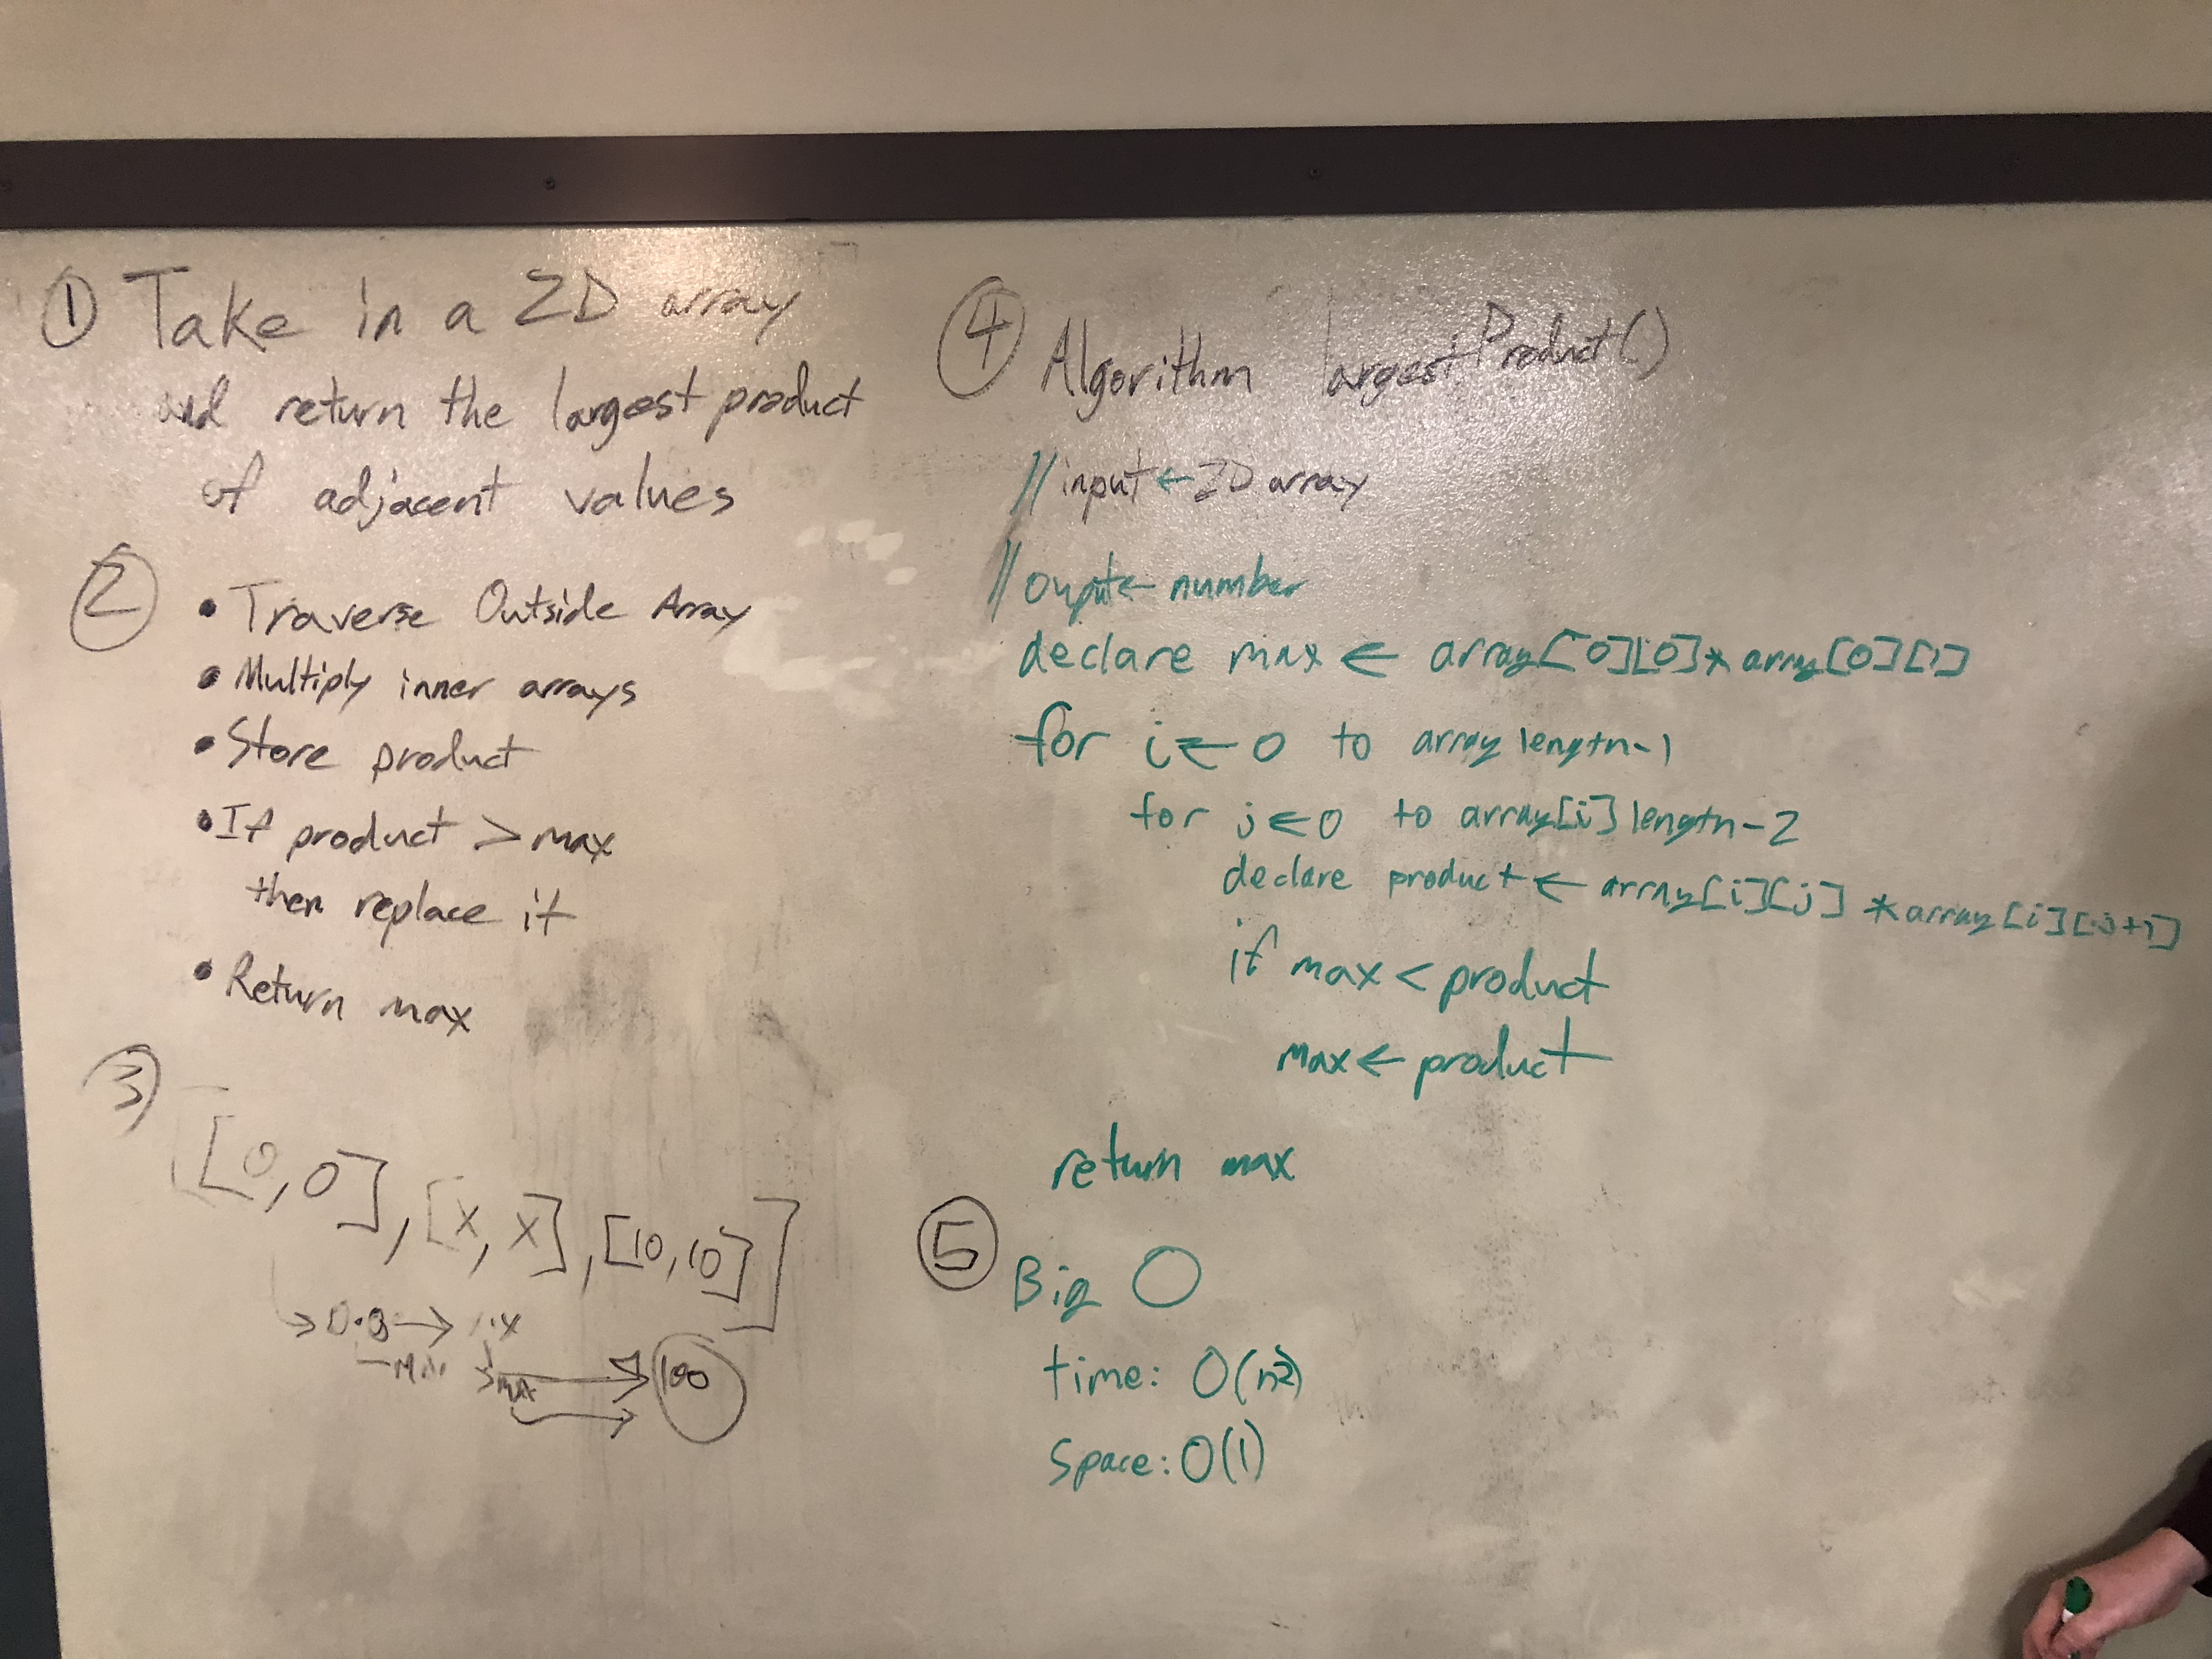 ① Take in a 2D array
and return the largest product
of adjacent values
② • Traverse Outside Array
• Multiply inner arrays
• Store product
• If product > max
then replace it
• Return max
3)
[0,0], [x, x], [10,10]]
→ 0·0 →
100
④ Algorithm largestProduct()
// input ← 2D array
// ouput ← number
declare max ← array[0][0] * array[0][1]
for i ← 0 to array length-1
for j ← 0 to array[i] length-2
declare product ← array[i][j] * array[i][j+1]
if max < product
max ← product
return max
⑤ Big O
time: O(n²)
Space: O(1)